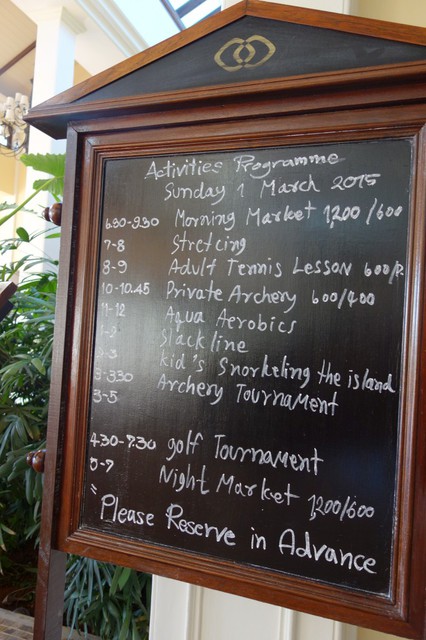 Activities Programme
Sunday 1 March 2015
6.30-9.30 Morning Market 1,200/600
7-8 Stretcing
8-9 Adult Tennis Lesson 600/P.
10-10.45 Private Archery 600/400
11-12 Aqua Aerobics
1-2 Slackline
2-3 Kid's Snorkeling the island
3-3.30 Archery Tournament
3-5
4.30-7.30 golf Tournament
5-7 Night Market 1,200/600
"Please Reserve in Advance